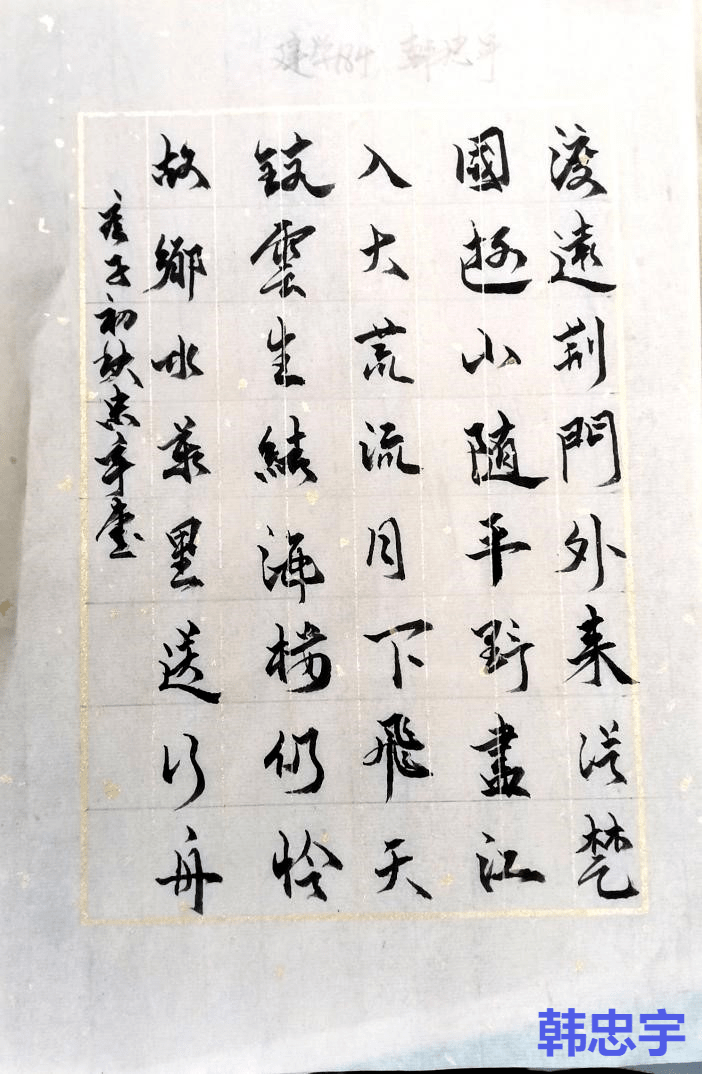 建学184 韩忠宇
渡遠荆門外来從楚
國遊山随平野盡江
入大荒流月下飛天
鏡雲生結海楼仍怜
故鄉水萬里送行舟
庚子初秋忠宇書
韩忠宇